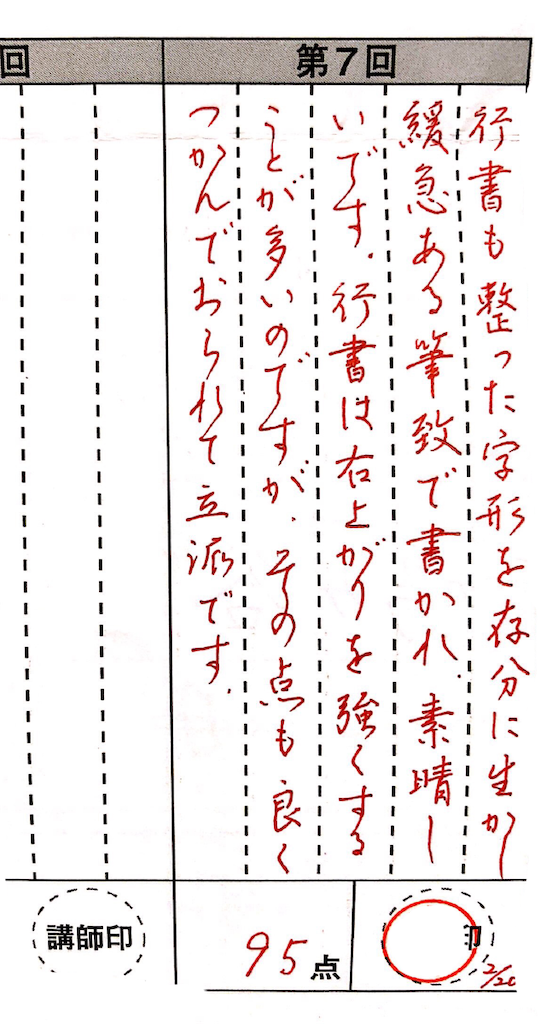 回
第7回
行書も整った字形を存分に生かし
緩急ある筆致で書かれ、素晴し
いです。行書は右上がりを強くする
ことが多いのですが、その点も良く
つかんでおられて立派です。
講師印
95点
印
2/20